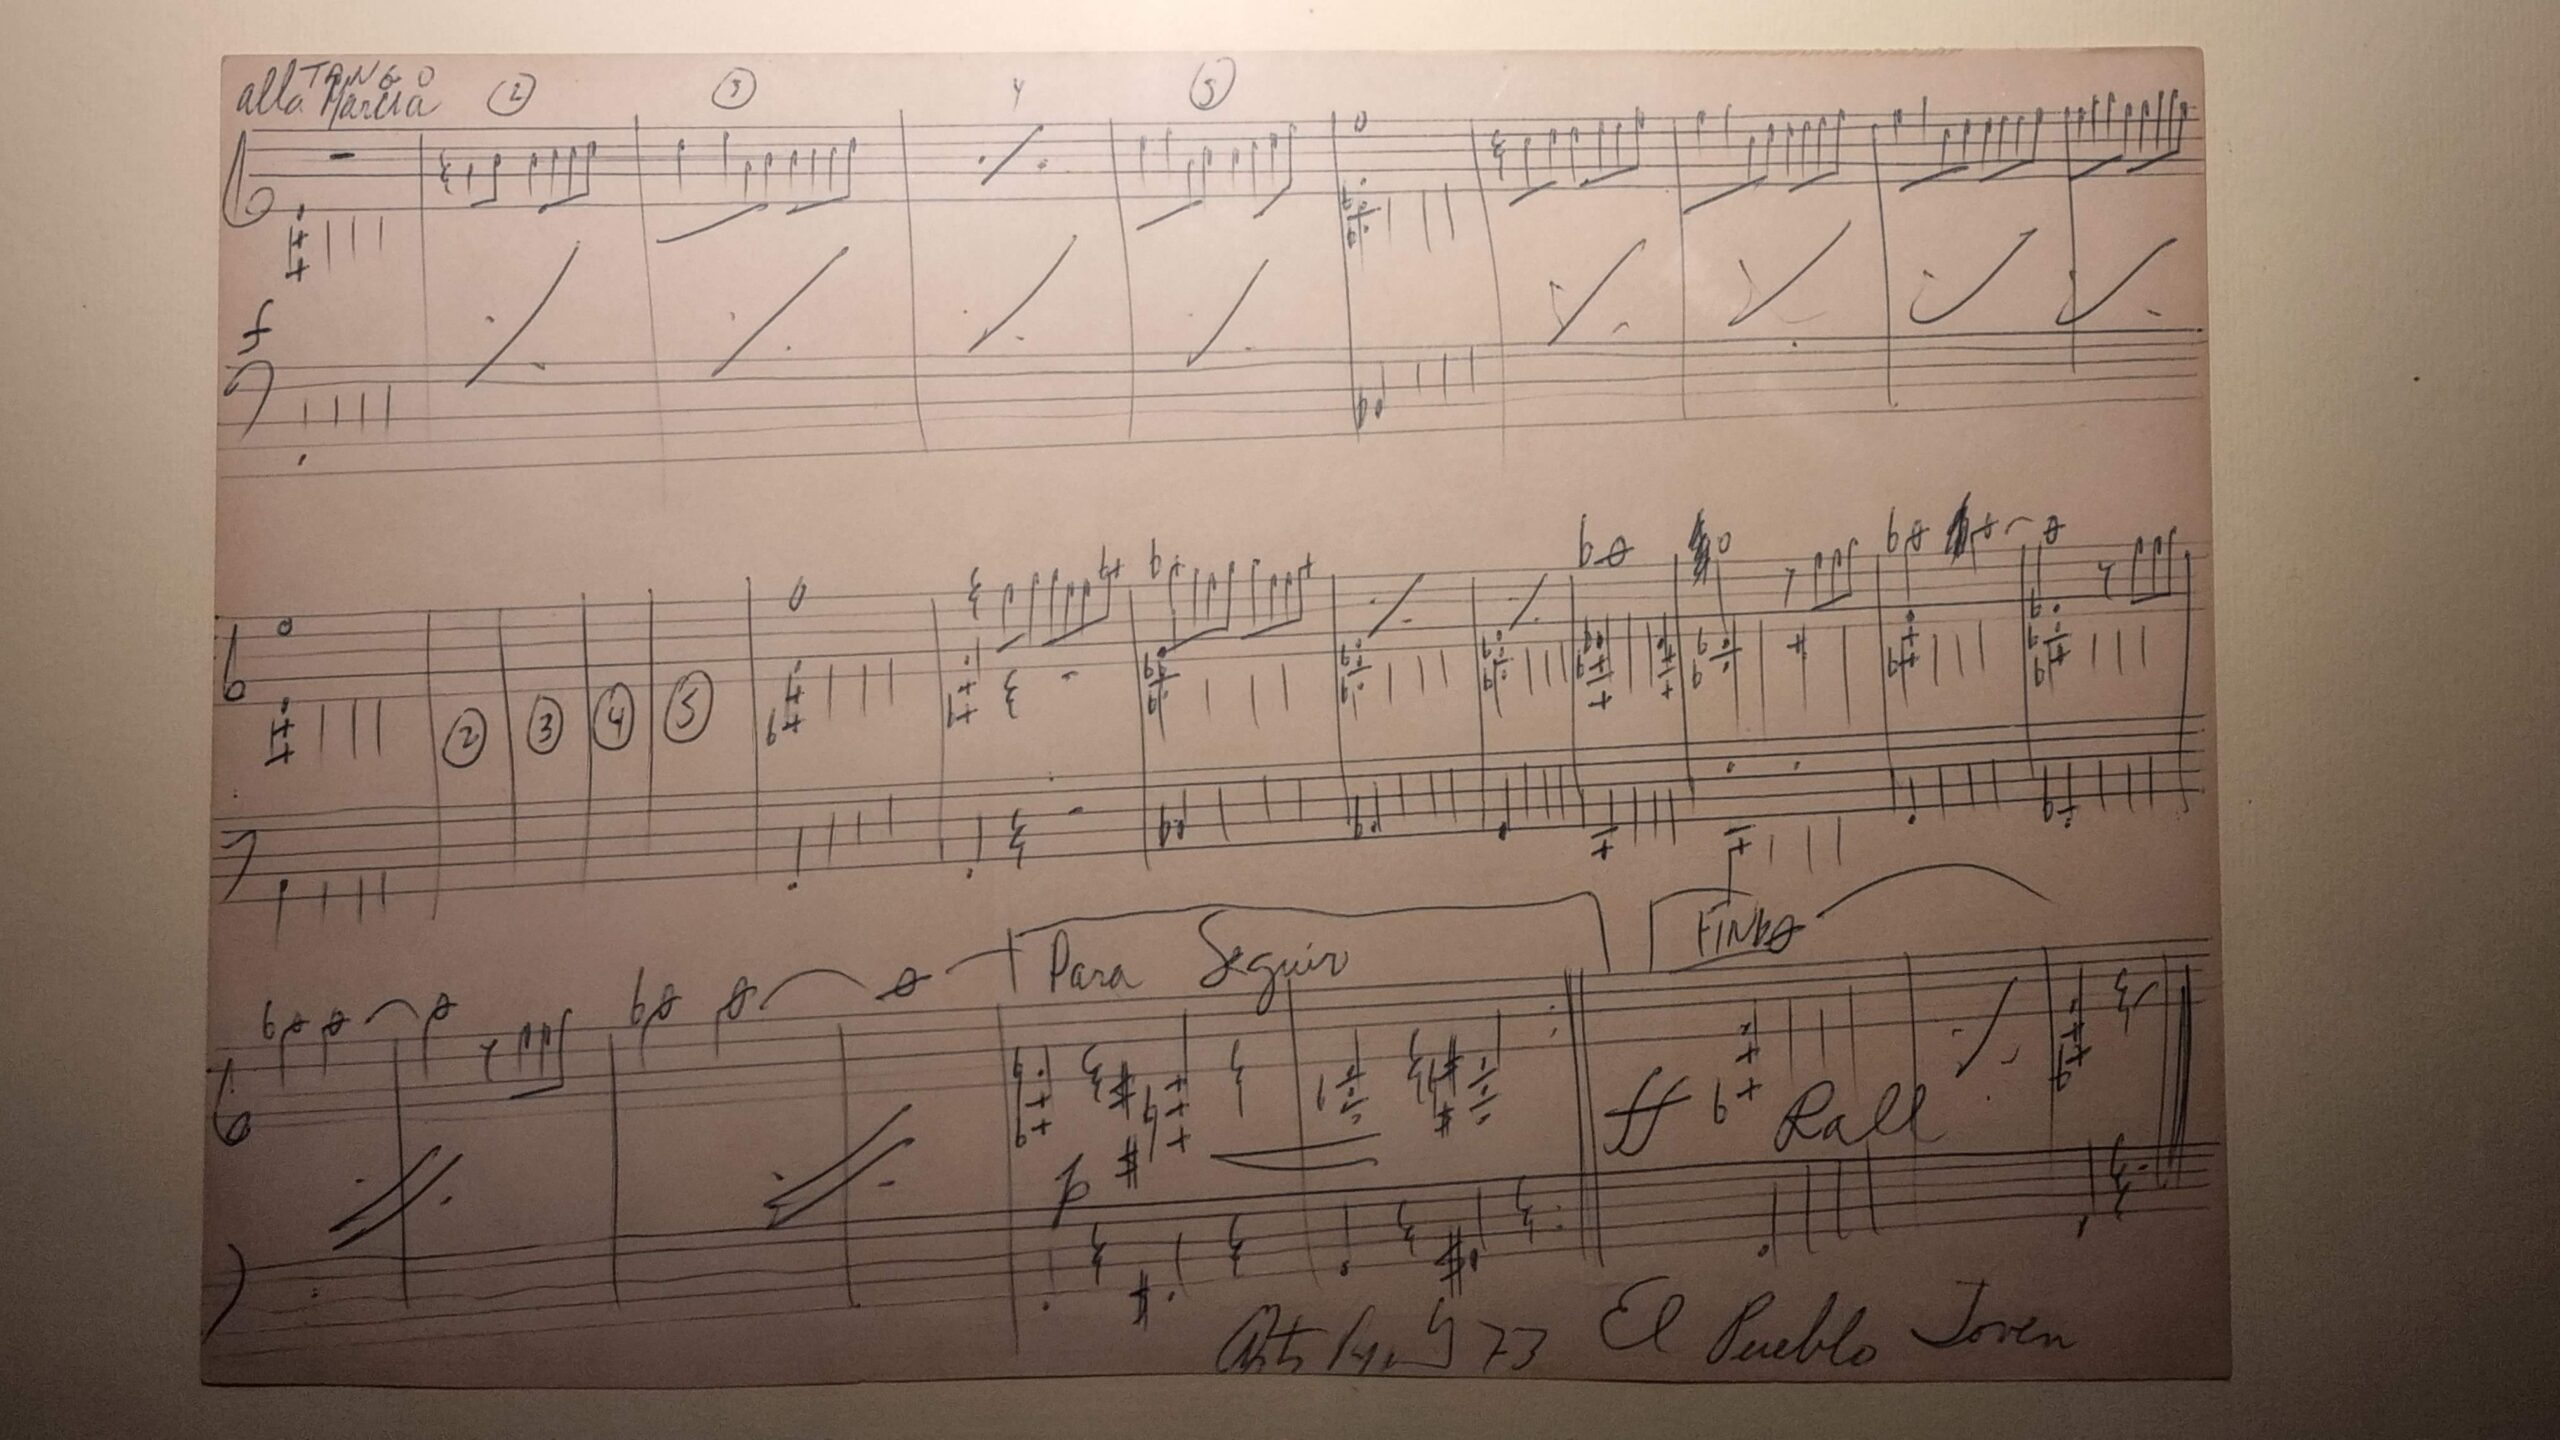 TANGO
alla Marcia
2 3 4 5
f
2 3 4 5
Para Seguir
FIN
p
ff Rall
73 El Pueblo Joven